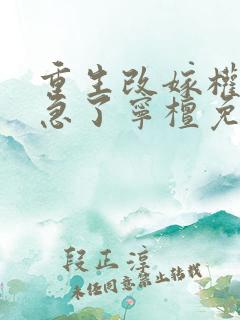 重生改嫁權
急了寧檀免
段正淳
未经同意禁止转载